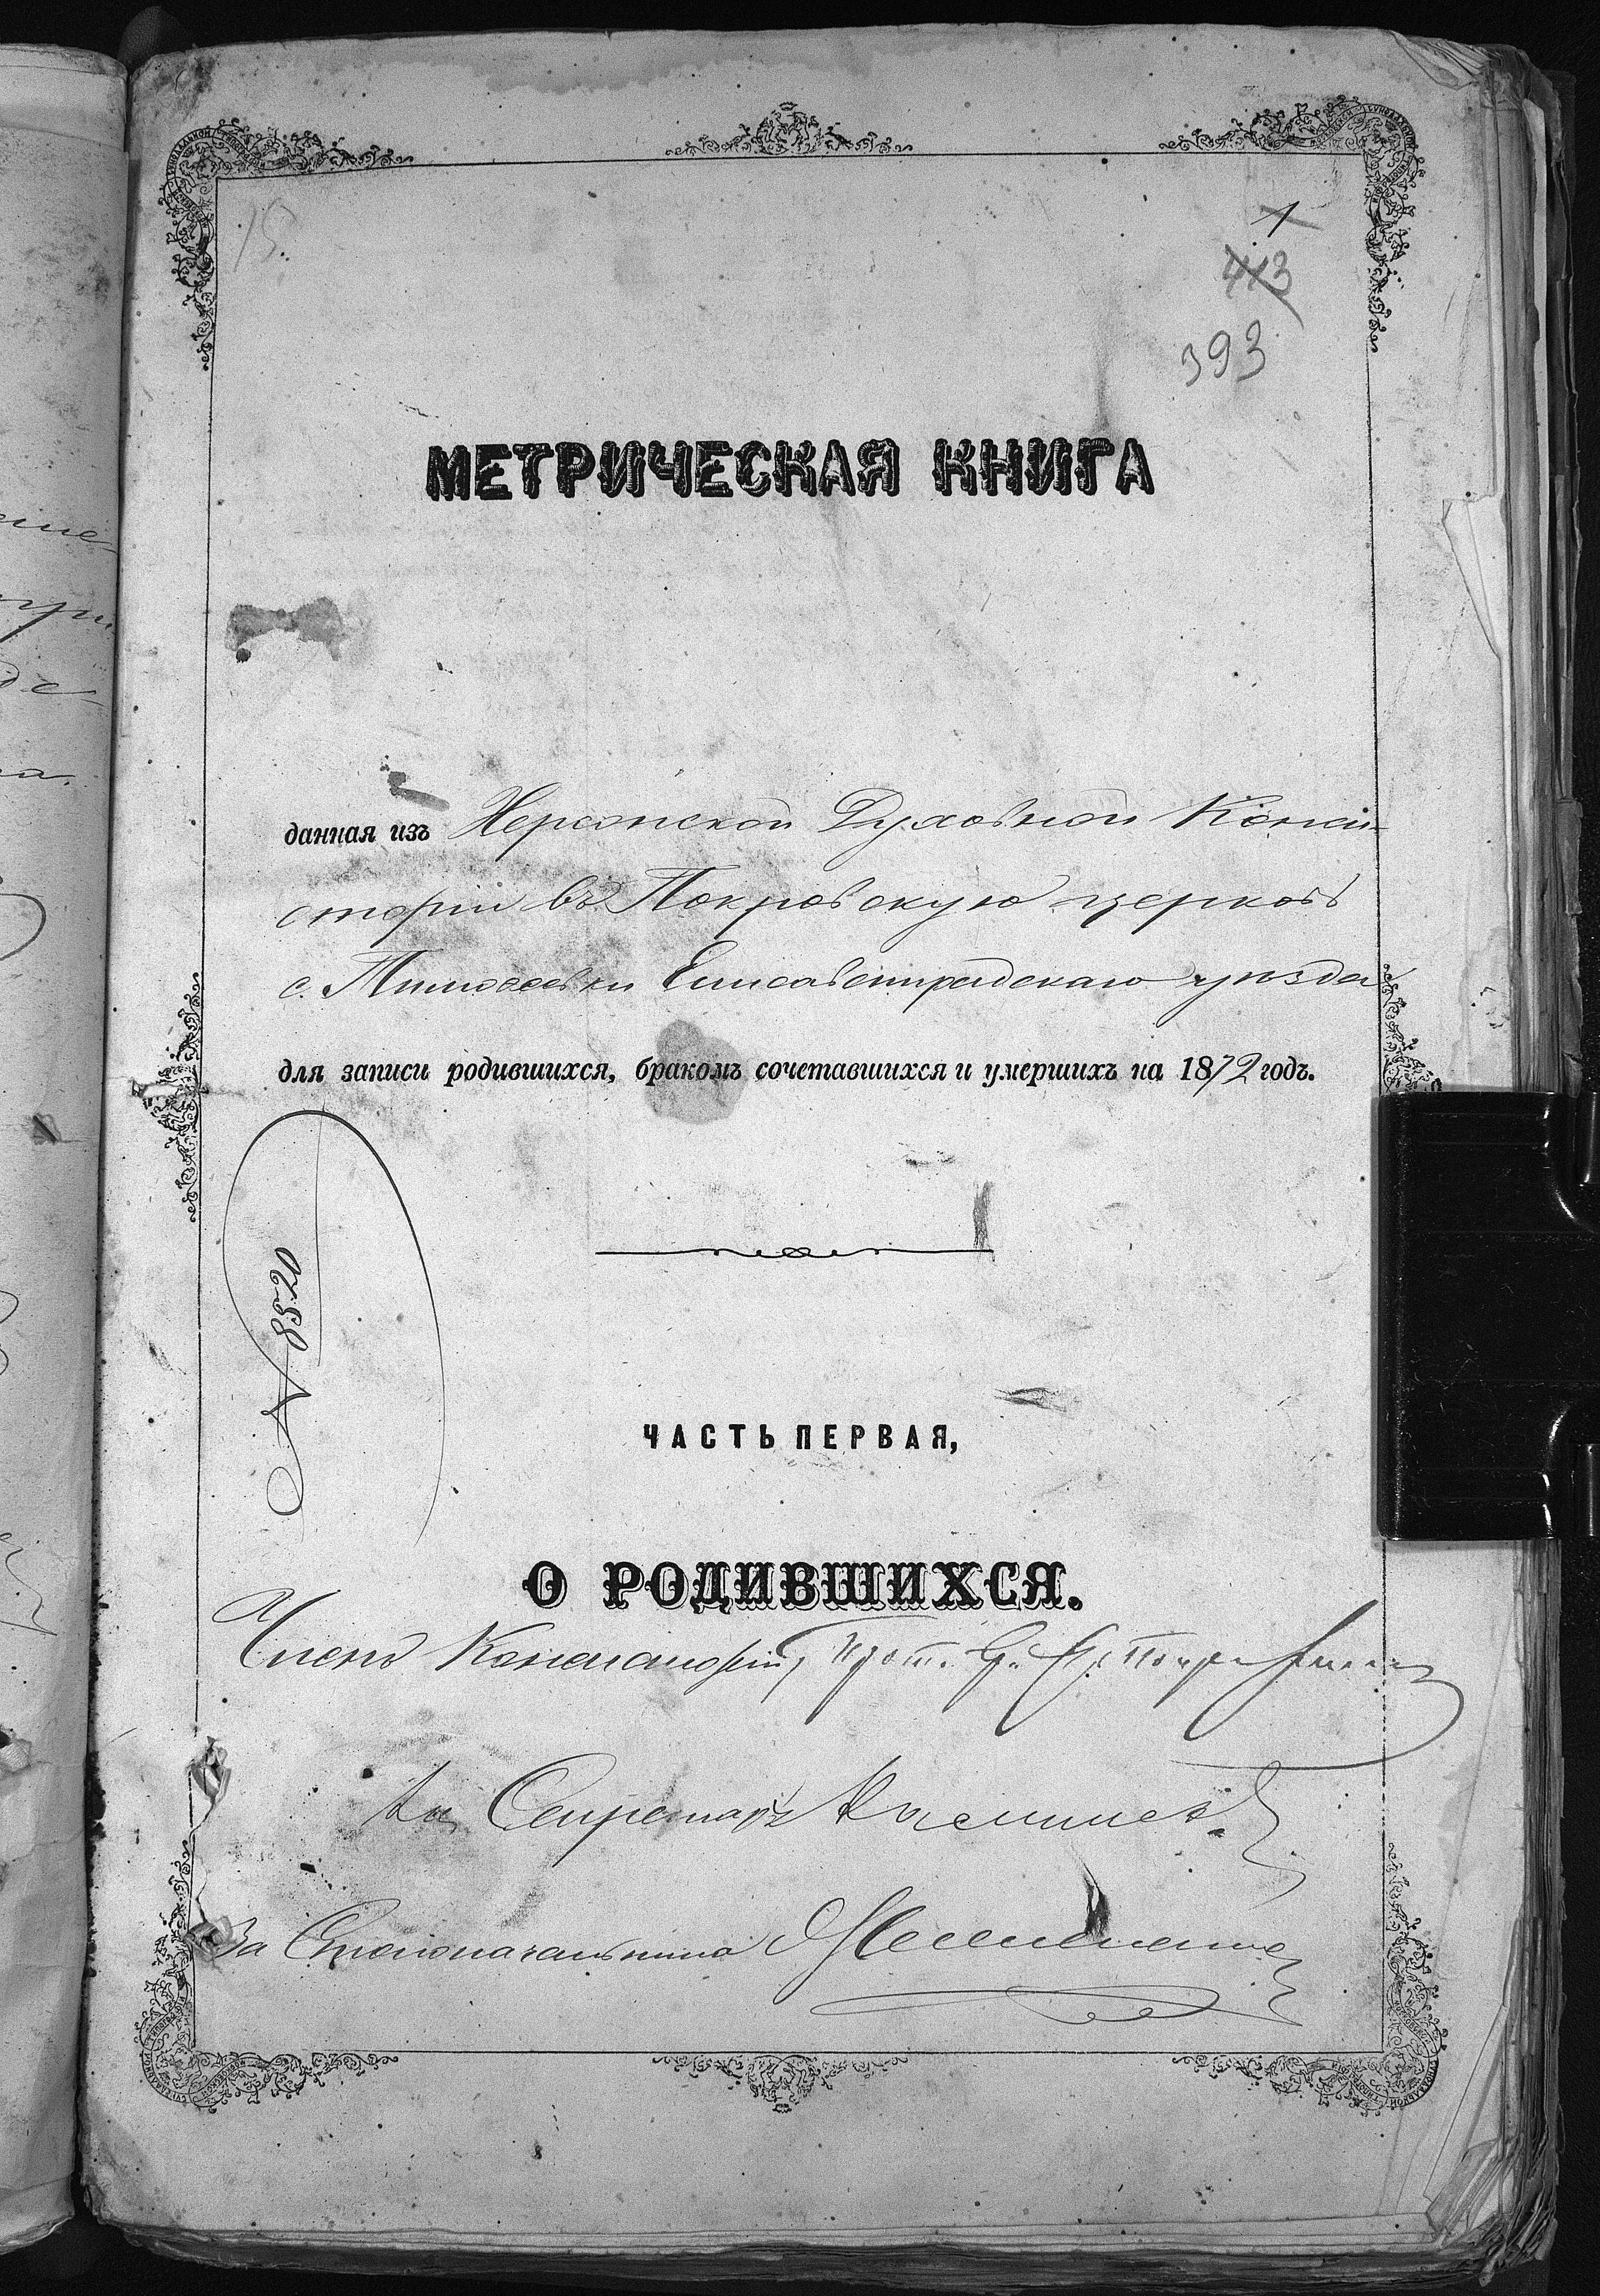 15.
1
443
393
МЕТРИЧЕСКАЯ КНИГА
данная изъ Херсонской Духовной Конси-
сторіи въ Покровскую церковь
с. Тимоѳеевки Елисаветградскаго уѣзда
для записи родившихся, бракомъ сочетавшихся и умершихъ на 1872 годъ.
№ 8520
ЧАСТЬ ПЕРВАЯ,
О РОДИВШИХСЯ.
Членъ Консисторіи, Прот.
Секретарь
За Столоначальника